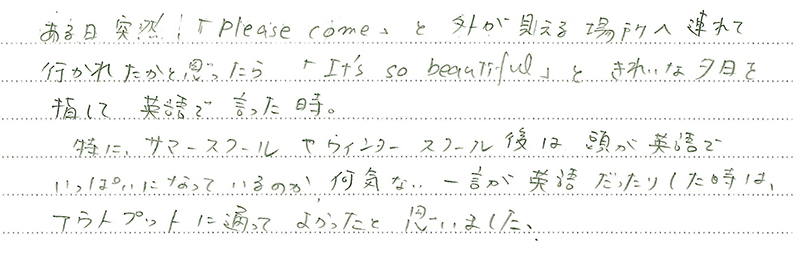 ある日突然、「please come」と外が見える場所へ連れて
行かれたかと思ったら「It's so beautiful」ときれいな夕日を
指して英語で言った時。
特に、サマースクールやウィンタースクール後は頭が英語で
いっぱいになっているのか何気ない一言が英語だったりした時は、
アウトプットに通ってよかったと思いました、